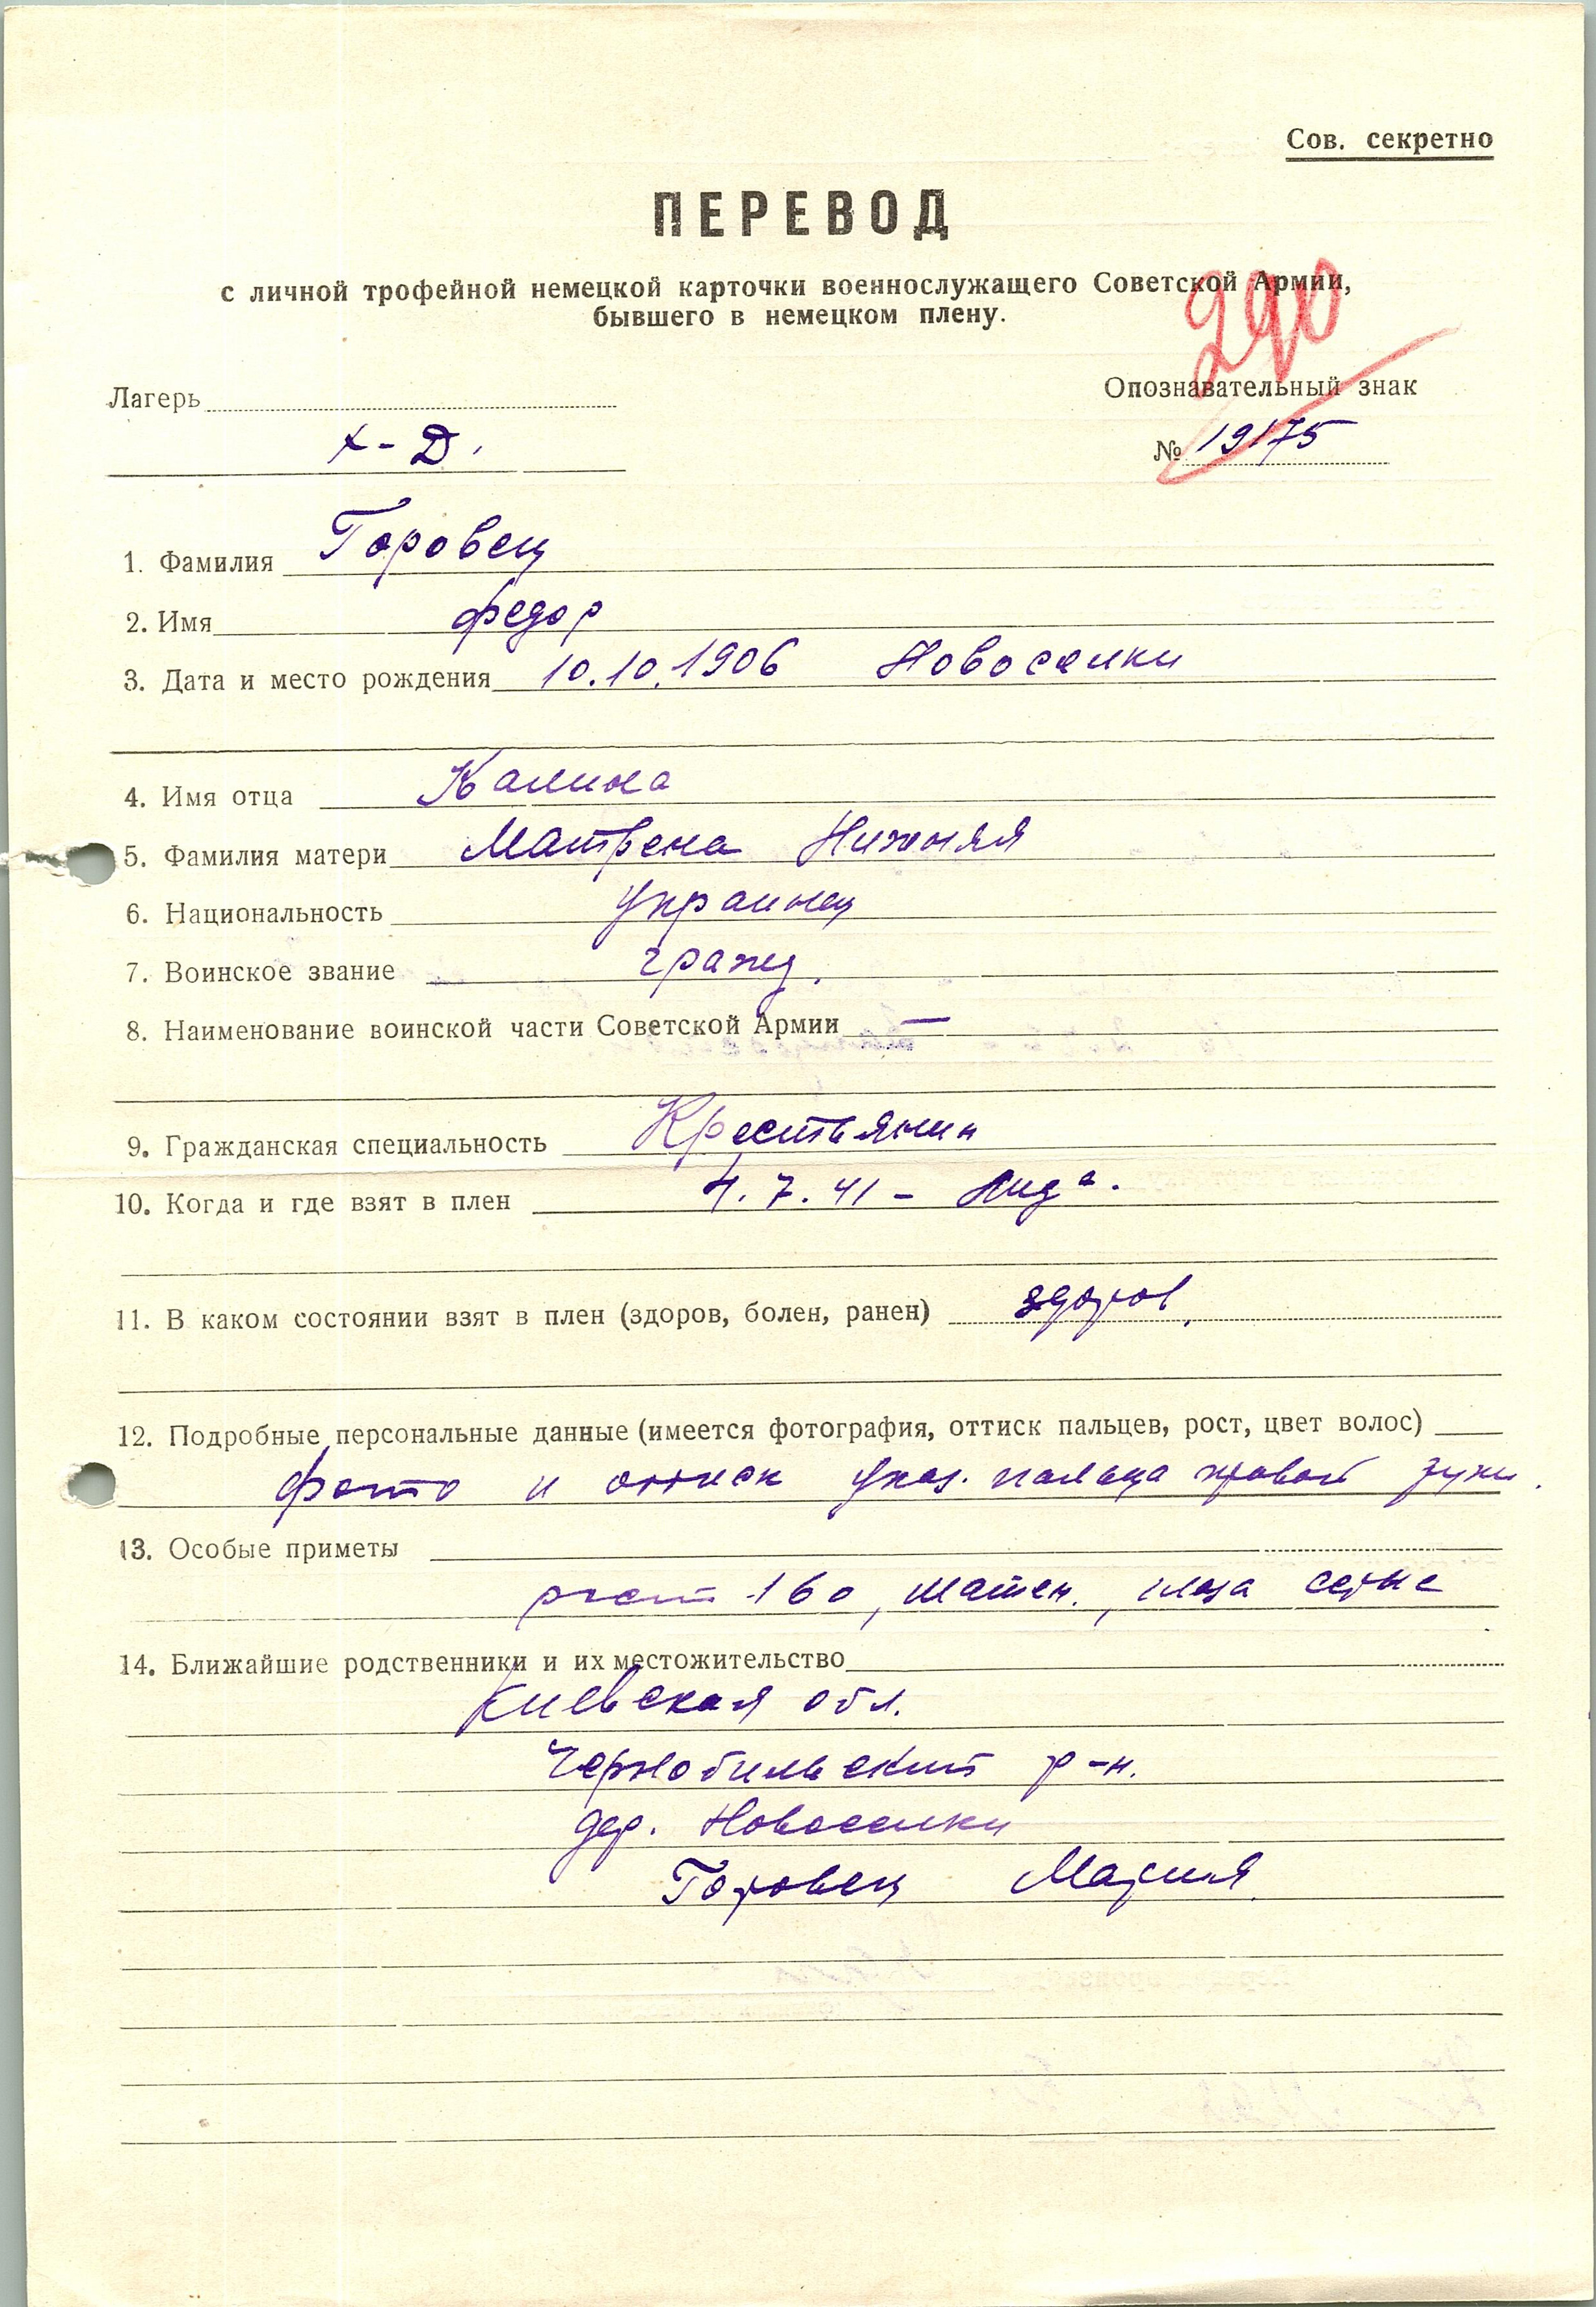 Сов. секретно
ПЕРЕВОД
с личной трофейной немецкой карточки военнослужащего Советской Армии,
бывшего в немецком плену.
290
Лагерь
Опознавательный знак
X-D.
№ 19175
1. Фамилия Горовец
2. Имя Федор
3. Дата и место рождения 10.10.1906 Новоселки
4. Имя отца Калина
5. Фамилия матери Матрена Нижняя
6. Национальность украинец
7. Воинское звание гражд.
8. Наименование воинской части Советской Армии —
9. Гражданская специальность Крестьянин
10. Когда и где взят в плен 4.7.41 – Лида.
11. В каком состоянии взят в плен (здоров, болен, ранен) здоров.
12. Подробные персональные данные (имеется фотография, оттиск пальцев, рост, цвет волос)
фото и оттиск указ. пальца правой руки.
13. Особые приметы
рост 160, шатен., глаза серые
14. Ближайшие родственники и их местожительство
Киевская обл.
Чернобильский р-н.
дер. Новоселки
Горовец Мария.